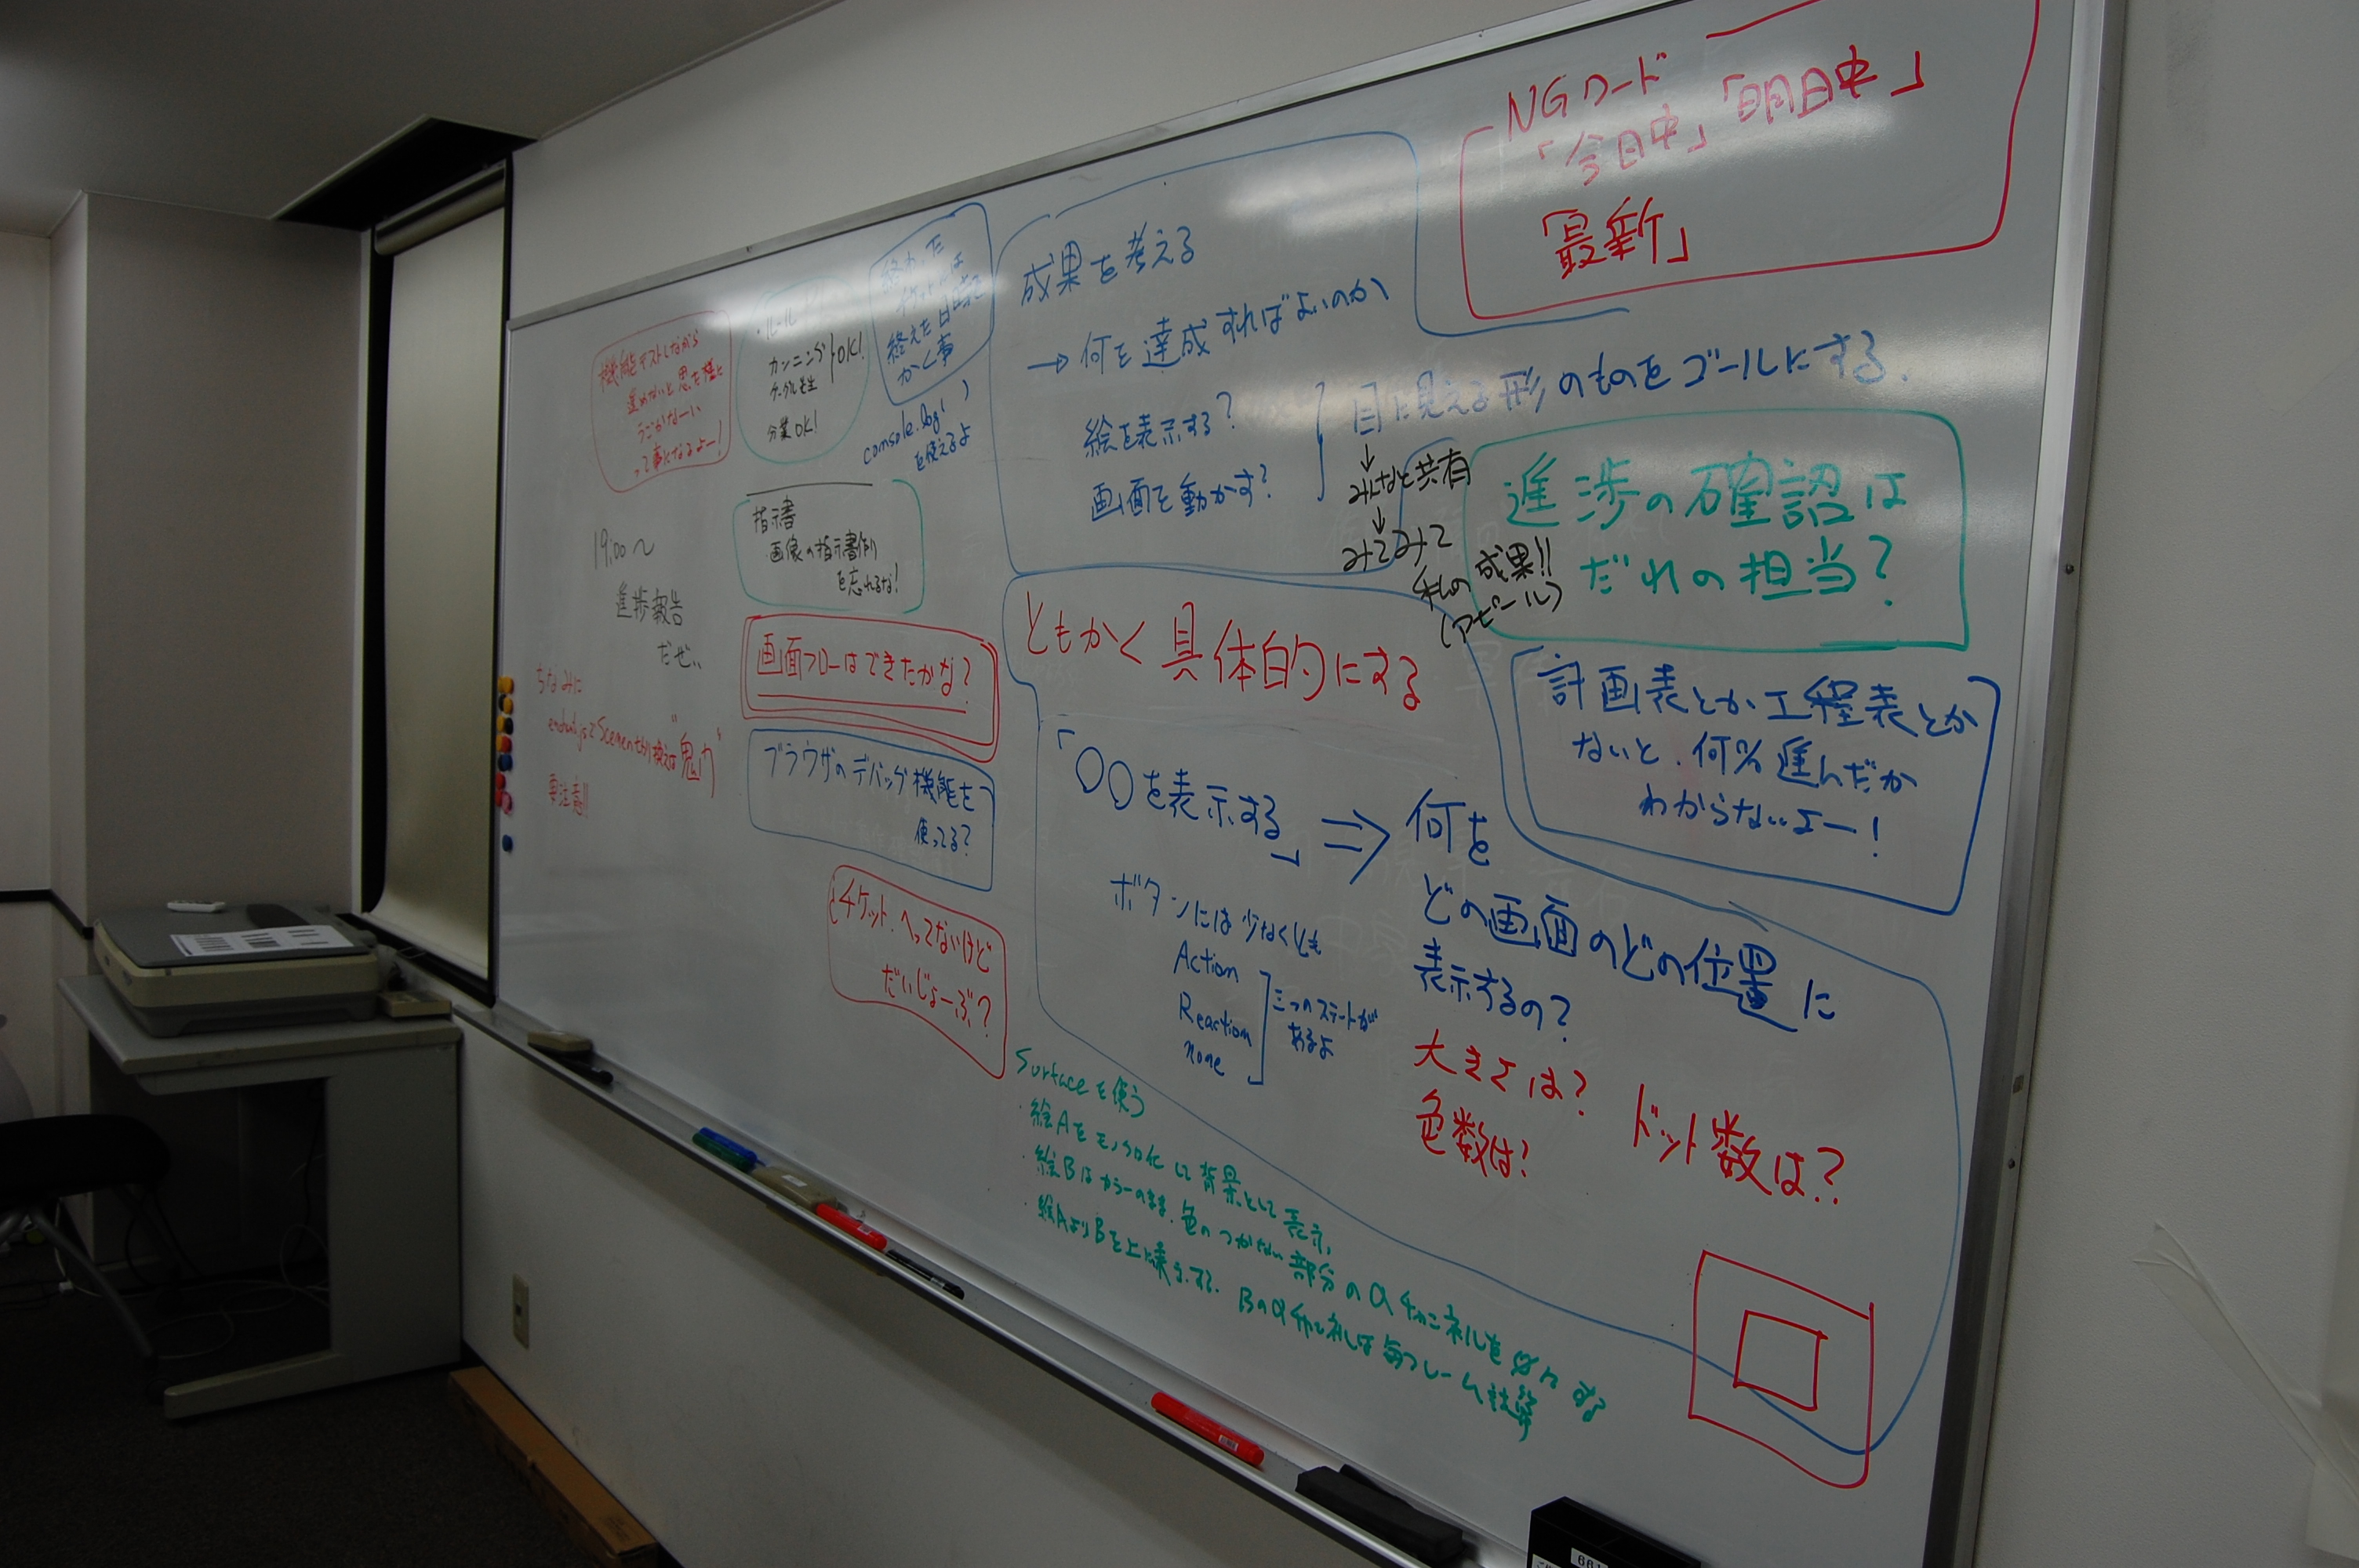 機能テストしながら
進めないと思た様に
うごかなーい
って事になるよー!
19:00〜
進捗報告
だぜ、、
ちなみに
enchant.jsでSceneの切り換えは"鬼門"
要注意!!
・ルール
カンニング OK!
グーグル先生
分業OK!
終わった
チケットには
終えた日時を
かく事
console.log( )
を使えるよ
指示書
・画像の指示書作り
を忘れるな!
画面フローはできたかな?
ブラウザのデバッグ機能を
使ってる?
チケット、へってないけど
だいじょーぶ?
成果を考える
→何を達成すればよいのか
絵を表示する?
画面を動かす?
目に見える形のものをゴールにする.
↓
みんなと共有
↓
みてみて
私の成果!!
(アピール)
NGワード
「今日中」「明日中」
「最新」
進渉の確認は
だれの担当?
計画表とか工程表とか
ないと、何%進んだか
わからないよー!
ともかく具体的にする
「○○を表示する」⇒何を
どの画面のどの位置に
表示するの?
大きさは?
色数は?
ドット数は?
ボタンには少なくとも
Action
Reaction
none
三つのステートが
あるよ
Surfaceを使う
・絵Aをモノクロ化して背景として表示,
・絵Bはカラーのまま、色のつかない部分のαチャンネルを
・絵AよりBを上に乗せる. Bのαチャンネルは毎フレーム計算
661